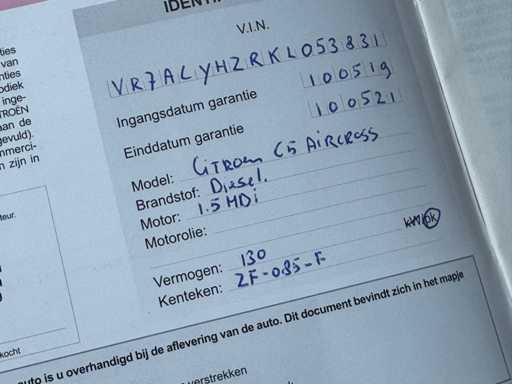 IDENTI
V.I.N.
VR7ACYHZRKL053831
Ingangsdatum garantie 100519
Einddatum garantie 100521
Model: CITROEN C5 AIRCROSS
Brandstof: Diesel.
Motor: 1.5 HDi
Motorolie:
Vermogen: 130 kW/pk
Kenteken: ZF-085-F
ties
van
nties
odiek
inge-
TROËN
aan de
gevuld).
mmerci-
n zijn in
teur.
kocht
auto is u overhandigd bij de aflevering van de auto. Dit document bevindt zich in het mapje
verstrekken